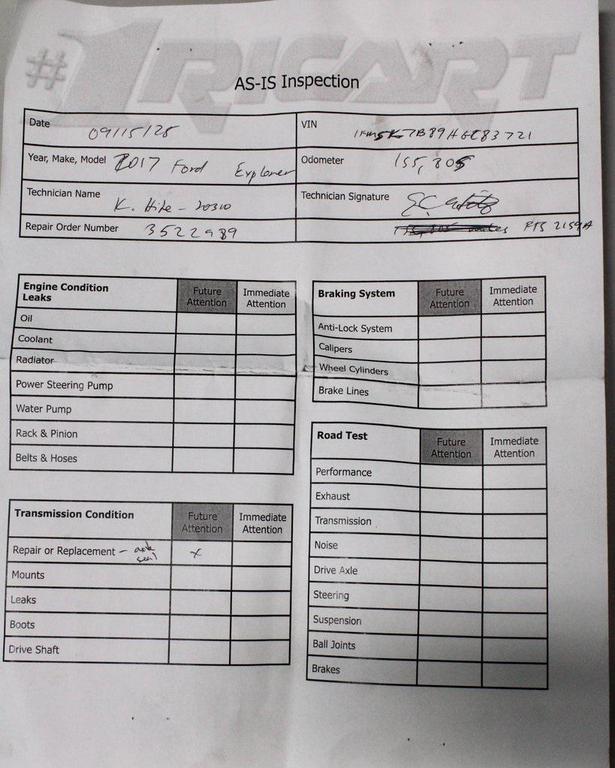 #1 RICART
AS-IS Inspection
Date 09/15/25 VIN 1FM5K7B89HGC83721
Year, Make, Model 2017 Ford Explorer Odometer 155,805
Technician Name K. Hite - 20310 Technician Signature
Repair Order Number 3522989 PTS 2159A
Engine Condition Leaks Future Attention Immediate Attention
Oil
Coolant
Radiator
Power Steering Pump
Water Pump
Rack & Pinion
Belts & Hoses
Braking System Future Attention Immediate Attention
Anti-Lock System
Calipers
Wheel Cylinders
Brake Lines
Transmission Condition Future Attention Immediate Attention
Repair or Replacement - axle seal x
Mounts
Leaks
Boots
Drive Shaft
Road Test Future Attention Immediate Attention
Performance
Exhaust
Transmission
Noise
Drive Axle
Steering
Suspension
Ball Joints
Brakes